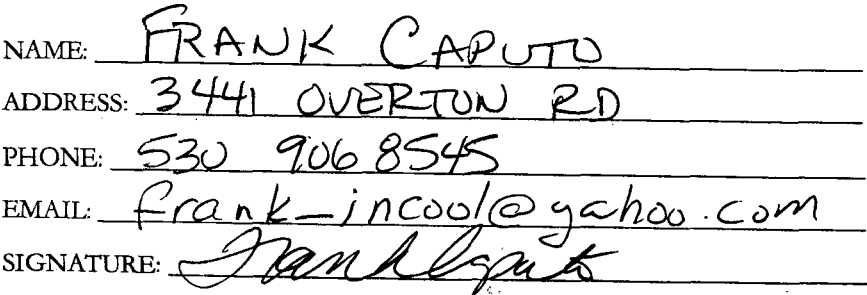 NAME: FRANK CAPUTO
ADDRESS: 3441 OVERTON RD
PHONE: 530 906 8545
EMAIL: frank_incool@yahoo.com
SIGNATURE: Frank Caputo